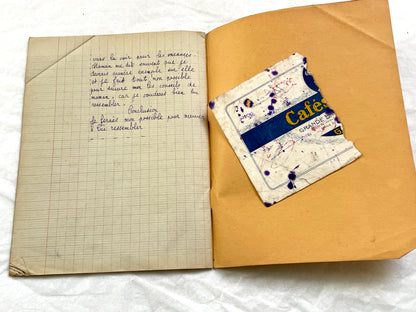 vous la voir pour les vacances
Maman me dit souvent que je
devrais prendre exemple sur elle
et je fait tout mon possible
pour suivre mon les conseils de
maman, car je voudrais bien lui
ressembler.
Conclusion
Je ferais mon possible pour
à lui ressembler
Cafés
GRANDE